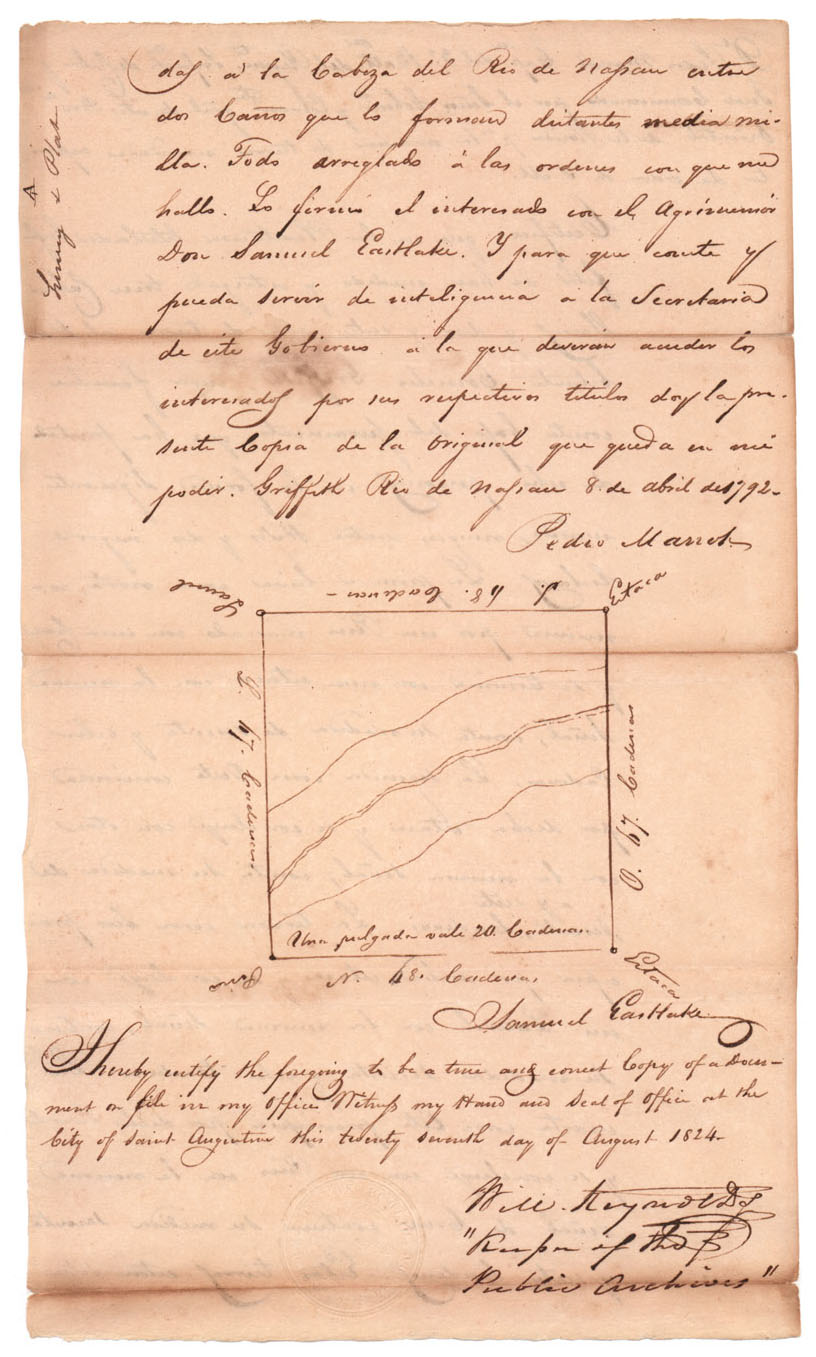 das á la Cabeza del Rio de Nassau entre
dos Caños que lo forman distantes media mi-
lla. Todo arreglado á las ordenes con que me
hallo. Lo firmó el interesado con el Agrimensor
Don Samuel Eastlake. Y para que conste y
pueda servir de inteligencia a la Secretaria
de este Gobierno á la que deveran acceder los
interesados por sus respectivos titulos doy la pre-
sente Copia de la original que queda en mi
poder. Griffith Rio de Nassau 8. de abril de 1792-
Pedro Marrot
Survey & Plat
A
Laurel
S. 48. Cadenas -
Estaca
L. 67. Cadenas
O. 67. Cadenas
Una pulgada vale 20. Cadenas.
Pino
N. 48. Cadenas,
Estaca
Samuel Eastlake
I hereby certify the foregoing to be a true and correct Copy of a Docu-
ment on file in my Office Witness my Hand and Seal of Office at the
City of Saint Augustine this twenty seventh day of August 1824-
Will. Reynolds
"Keeper of the
Public Archives"